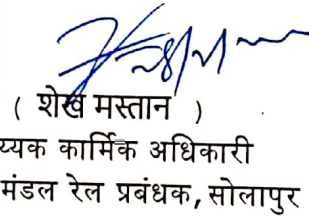 ( शेख मस्तान )
य्यक कार्मिक अधिकारी
मंडल रेल प्रबंधक, सोलापुर